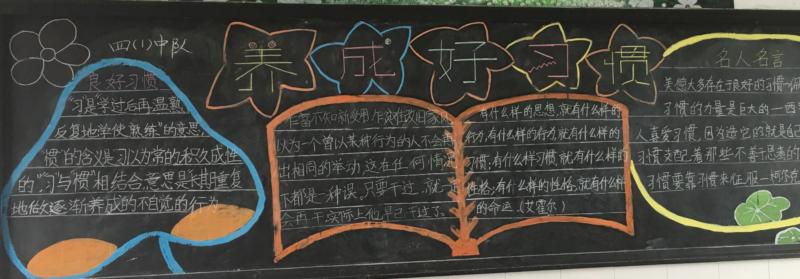 四(1)中队
养成好习惯
良好习惯
"习"是学过后再温熟
反复地学使熟练"的意思,
"惯"的含义是习以为常的积久成性
的"习"与"惯"相结合,意思是长期重复
地做,逐渐养成的不自觉的行为
以为一个曾以某种行为的人不会做
出相同的举动,这在任何情况
下都是一种误。只要干过,就一定
会再干,实际上他早已干过了。
有什么样的思想,就有什么样的
行为,有什么样的行为,就有什么样的
习惯;有什么样习惯,就有什么样的
性格;有什么样的性格,就有什么样
的命运。(艾霍尔)
名人名言
美德大多存在于良好的习惯
习惯的力量是巨大的一西
人喜爱习惯,因为造它的就是自己
习惯支配着那些不善于思考的
习惯要靠习惯来征服